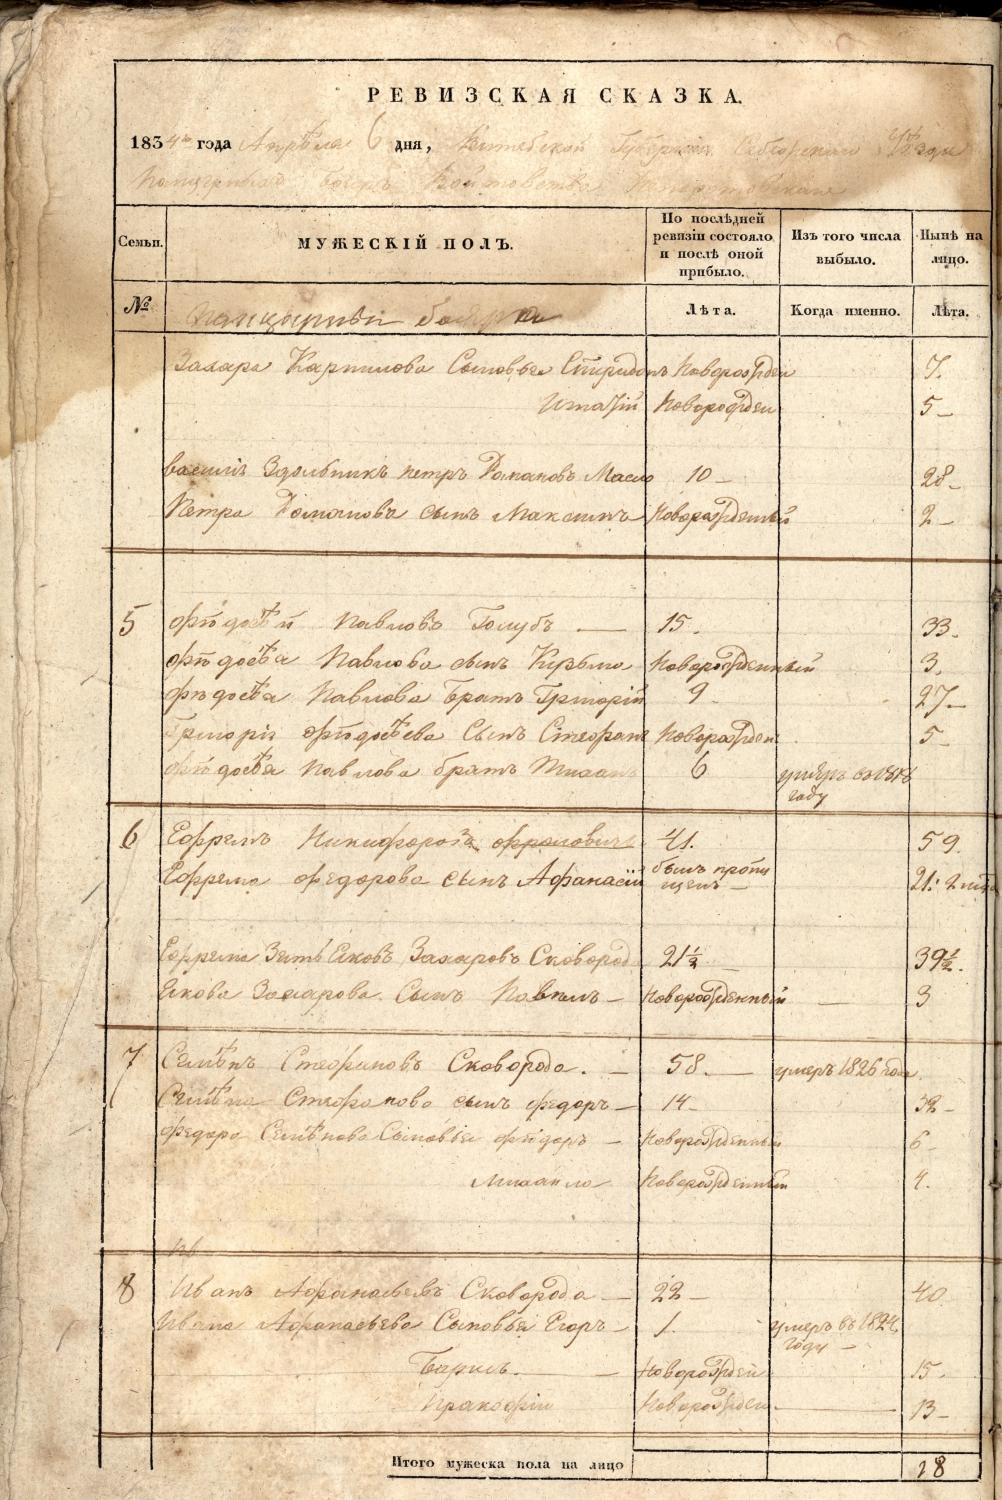 РЕВИЗСКАЯ СКАЗКА.
1834го года Апрѣля 6 дня, Витебской Губерніи Себежскаго Уѣзда
Панцырныхъ бояръ Войтовства
Семьи. МУЖЕСКІЙ ПОЛЪ. По послѣдней ревизіи состояло и послѣ оной прибыло. Изъ того числа выбыло. Нынѣ на лицо.
№ Панцырніи бояра Лѣта. Когда именно. Лѣта.
Захара Карпилова Сыновья Спиридонъ Новорожден 7.
Игнатій Новорожден 5
Василій Здольникъ Петръ Романовъ Масло 10 28
Петра Романова сынъ Максимъ Новорожденный 2
5 Фѣдосѣй Павловъ Голубъ 15. 33.
Фѣдосѣя Павлова сынъ Курьмо Новорожденный 3.
Фѣдосѣя Павлова братъ Григорій 9 27
Григорія Фѣдосѣева Сынъ Стефанъ Новорожден 5
Фѣдосѣя Павлова братъ 6 умеръ въ 1818 году
6 Ефремъ Никифоровъ 41. 59.
Ефрема Федорова сынъ Афанасій былъ пропущенъ 21:
Ефрема Зять Яковъ Захаровъ Сковорода 21½ 39½.
Якова Захарова Сынъ Павелъ Новорожденный 3
7 Семѣнъ Стефановъ Сковорода. 58. умеръ 1826 года
Семѣна Стефанова сынъ Федоръ 14 32
Федора Семѣнова Сыновья Фѣдоръ Новорожденный 6
Михайло Новорожденный 4.
Ив
8 Иванъ Афанасьевъ Сковорода 22 40
Ивана Афанасьева Сыновья Егоръ 1. умеръ въ 1824 году
Барисъ. Новорожден 15.
Пракофій Новорожден 13
Итого мужеска пола на лицо 18